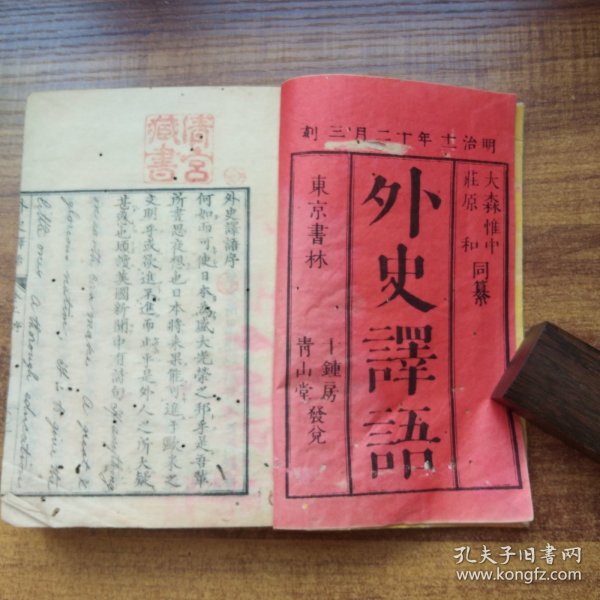 明治十年十二月三刻
大森惟中
莊原 和
同纂
外史譯語
東京書林
十鍾房
青山堂
發兌
清宮
藏書
外史譯語序
何如而可使日本為盛大光榮之邦乎是吾輩
所常思皮想也日本將來果能可進于歐米之
文明乎或欲進不進而止乎是外人之所大疑
甚哉也頃讀英國新聞中有語句
necessity can make A great &
glorious nation: it is to give its
little ones A thorough education
孔夫子旧书网
www.kongfz.com